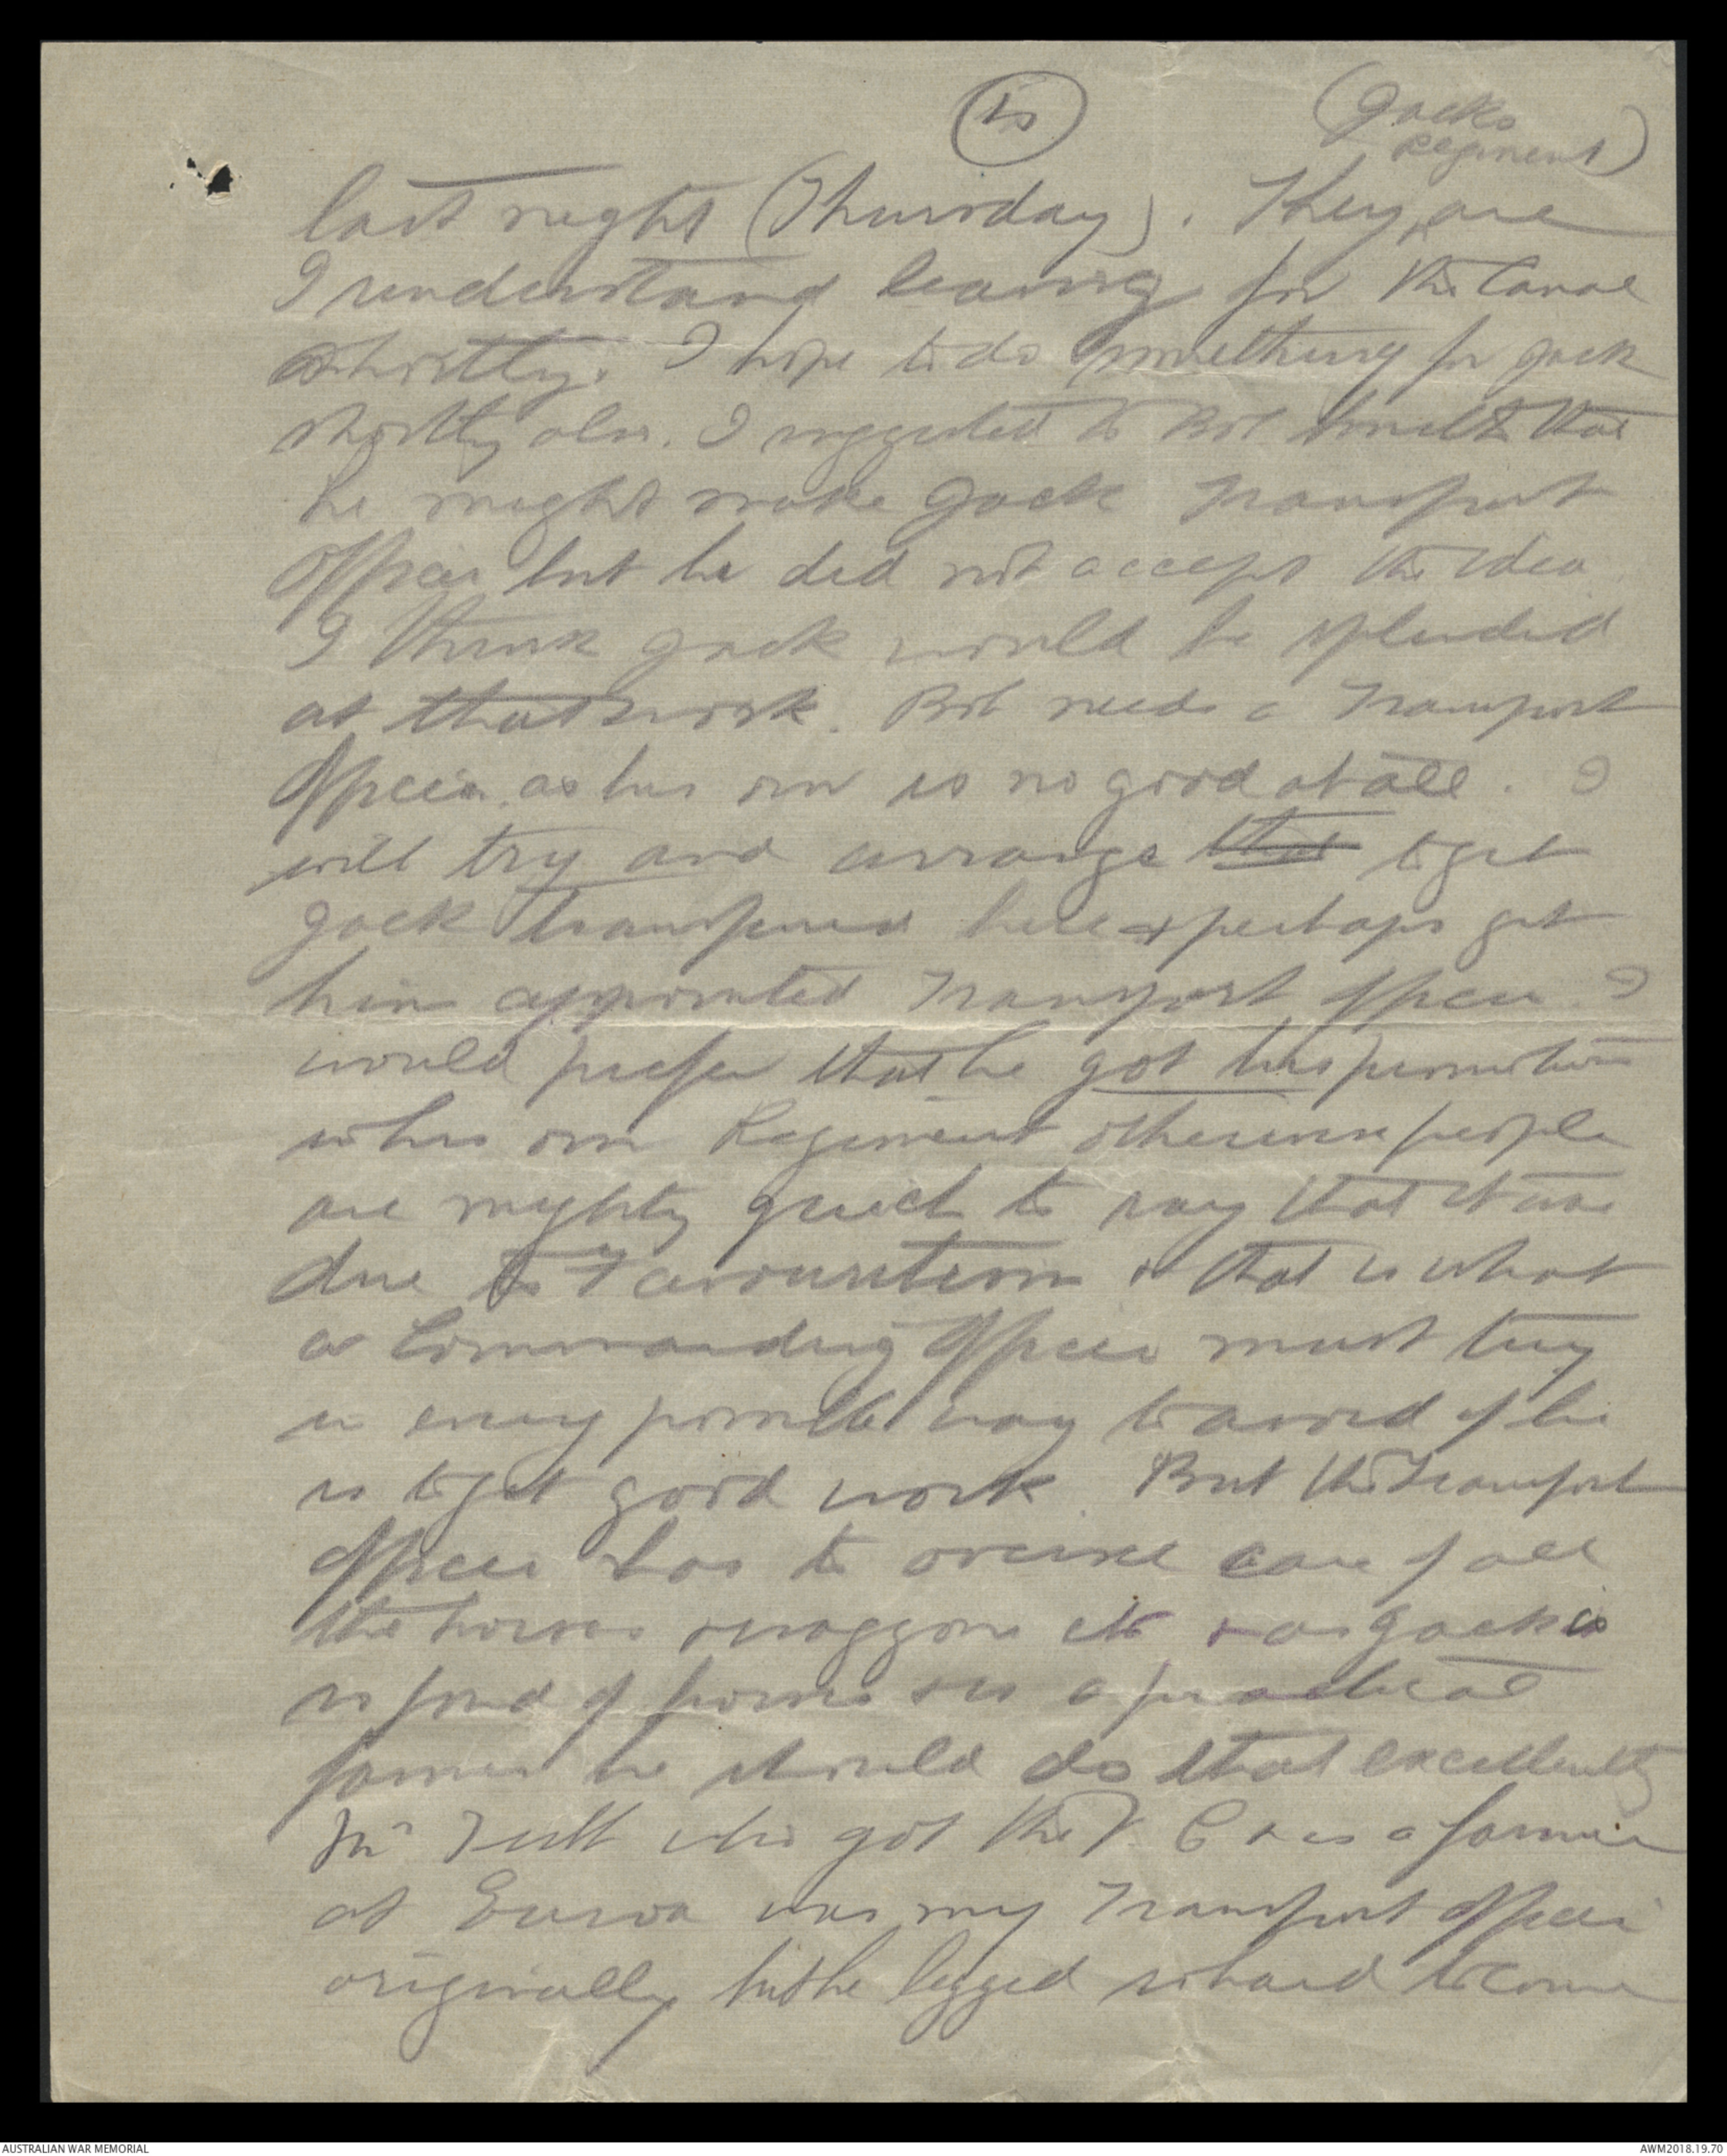 (Jacks
Regiment)
last night (Thursday). They are
I understand leaving for the Canal
shortly. I hope to do something for Jack
shortly also. I suggested to Bob Smith that
he might make Jack Transport
Officer but he did not accept the idea.
I think Jack would be splendid
at that work. Bob needs a Transport
Officer, as his own is no good at all. I
will try and arrange that to get
Jack transferred here & perhaps get
him appointed Transport Officer. I
would prefer that he got his promotion
in his own Regiment otherwise people
are mighty quick to say that it was
due to Favouritism & that is what
a Commanding Officer must try
in every possible way to avoid if he
is to get good work. But the Transport
Officer has to care of all
the horses & waggons etc & as Jack is
so fond of horses & is a practical
farmer he should do that excellently
Mr Tubb who got the V.C & is a farmer
at Euroa was my Transport Officer
originally but he begged so hard to come
AUSTRALIAN WAR MEMORIAL
AWM2018.19.70